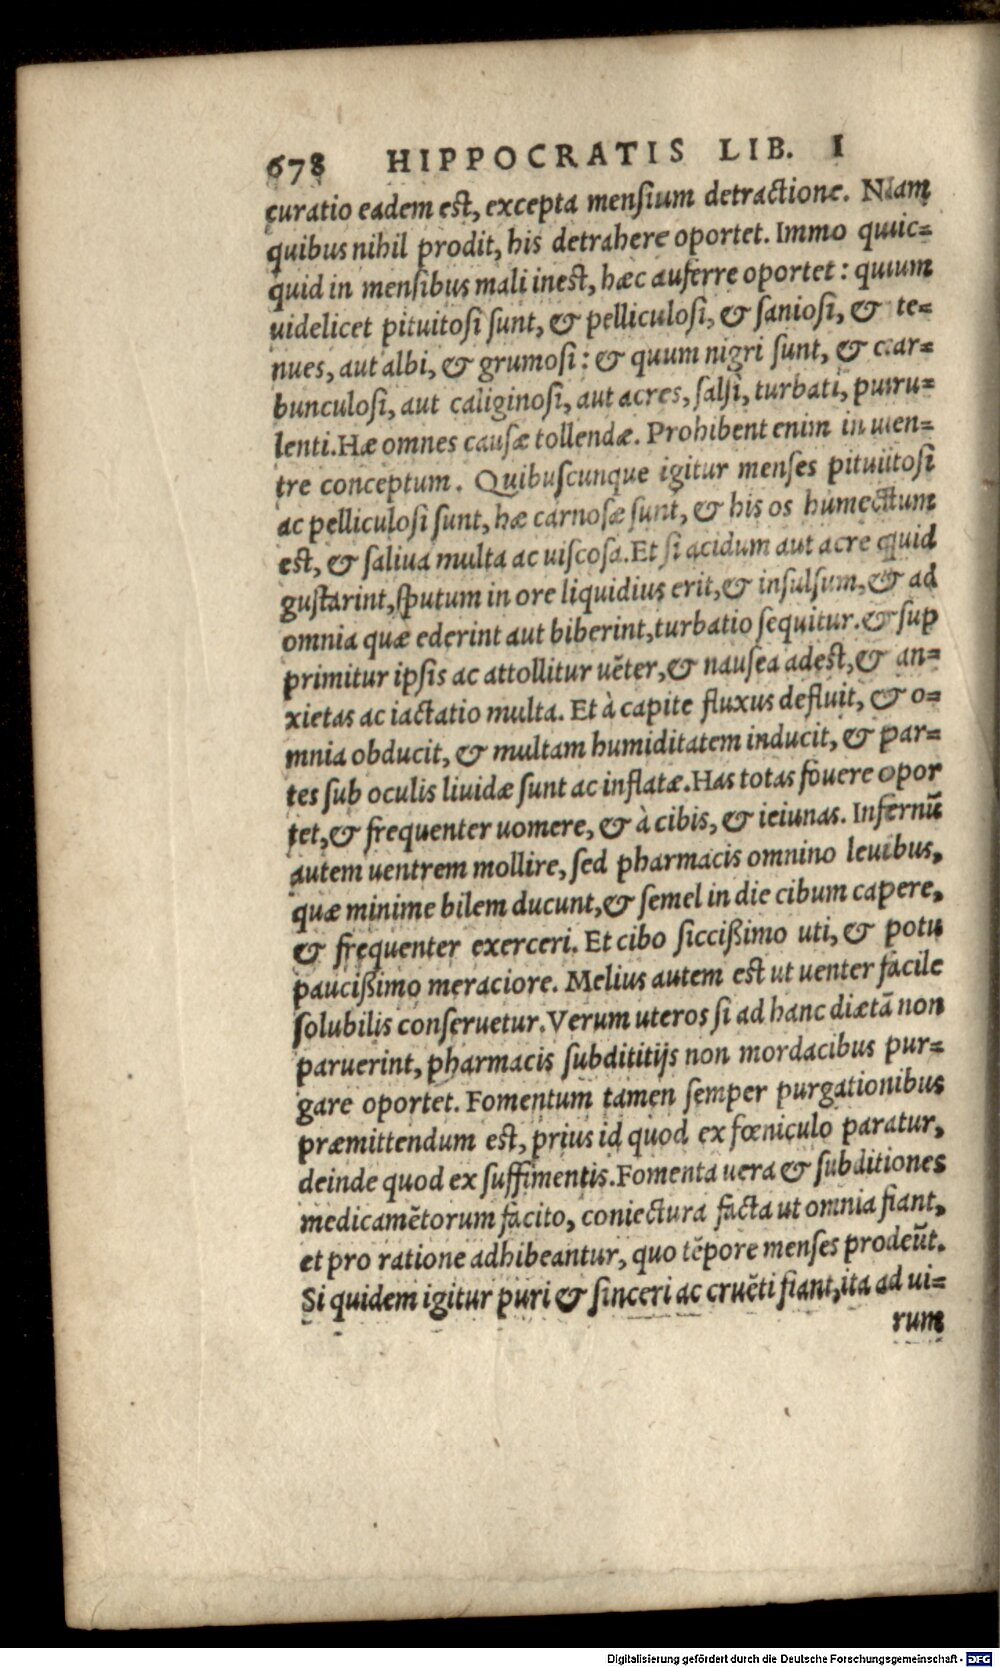 678 HIPPOCRATIS LIB. I
curatio eadem est, excepta mensium detractione. Nam
quibus nihil prodit, his detrahere oportet. Immo quic=
quid in mensibus mali inest, hæc auferre oportet: quum
uidelicet pituitosi sunt, & pelliculosi, & saniosi, & te=
nues, aut albi, & grumosi: & quum nigri sunt, & car=
bunculosi, aut caliginosi, aut acres, salsi, turbati, puru=
lenti. Hæ omnes causæ tollendæ. Prohibent enim in uen=
tre conceptum. Quibuscunque igitur menses pituitosi
ac pelliculosi sunt, hæ carnosæ sunt, & his os humectum
est, & saliua multa ac uiscosa. Et si acidum aut acre quid
gustarint, sputum in ore liquidius erit, & insulsum, & ad
omnia quæ ederint aut biberint, turbatio sequitur. & sup
primitur ipsis ac attollitur uẽter, & nausea adest, & an=
xietas ac iactatio multa. Et à capite fluxus defluit, & o=
mnia obducit, & multam humiditatem inducit, & par=
tes sub oculis liuidæ sunt ac inflatæ. Has totas fouere opor
tet, & frequenter uomere, & à cibis, & ieiunas. Infernũ
autem uentrem mollire, sed pharmacis omnino leuibus,
quæ minime bilem ducunt, & semel in die cibum capere,
& frequenter exerceri. Et cibo siccißimo uti, & potu
paucißimo meraciore. Melius autem est ut uenter facile
solubilis conseruetur. Verum uteros si ad hanc diætã non
paruerint, pharmacis subdititijs non mordacibus pur=
gare oportet. Fomentum tamen semper purgationibus
præmittendum est, prius id quod ex fœniculo paratur,
deinde quod ex suffimentis. Fomenta uera & subditiones
medicamẽtorum facito, coniectura facta ut omnia fiant,
et pro ratione adhibeantur, quo tẽpore menses prodeũt.
Si quidem igitur puri & sinceri ac cruẽti fiant, ita ad ui=
rum
Digitalisierung gefördert durch die Deutsche Forschungsgemeinschaft - DFG